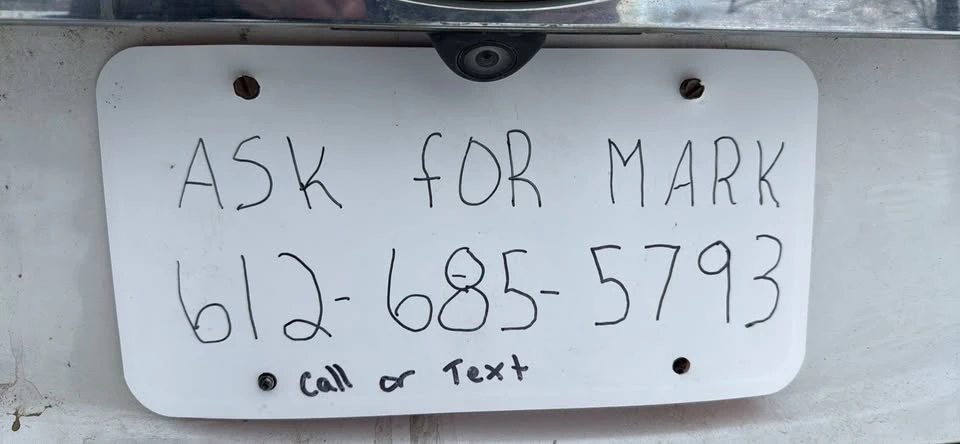 ASK fOR MARK
612-685-5793
Call or Text